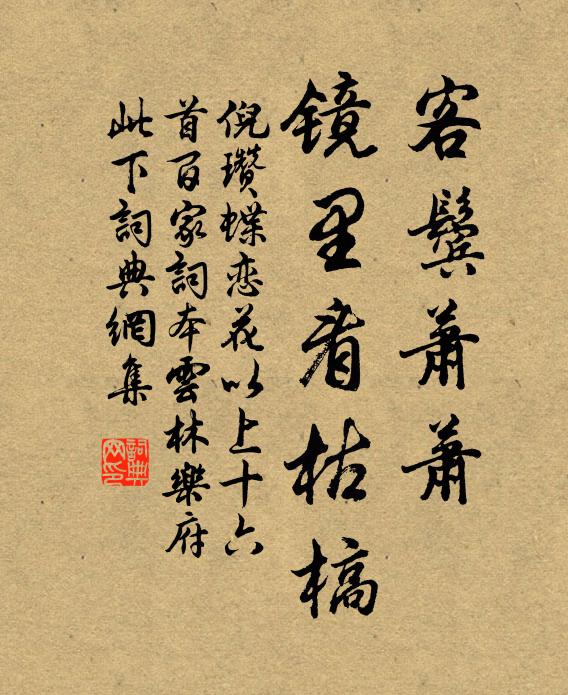 客鬓萧萧
镜里看枯槁
倪瓒蝶恋花以上十六
首百家詞本雲林樂府
此下詞典網集
詞典网印